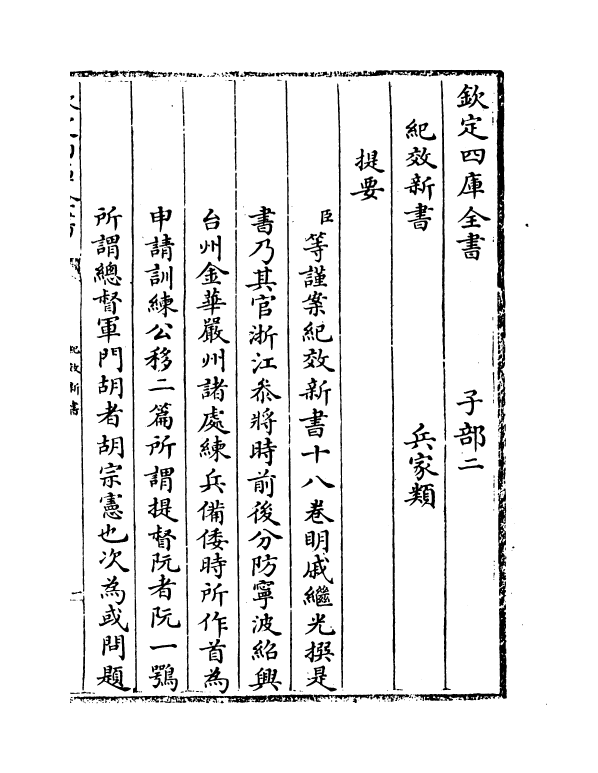 欽定四庫全書　子部二
紀效新書　兵家類
提要
臣等謹案紀效新書十八卷明戚繼光撰是
書乃其官浙江叅將時前後分防寧波紹興
台州金華嚴州諸處練兵備倭時所作首為
申請訓練公移二篇所謂提督阮者阮一鶚
所謂總督軍門胡者胡宗憲也次為或問題
紀效新書